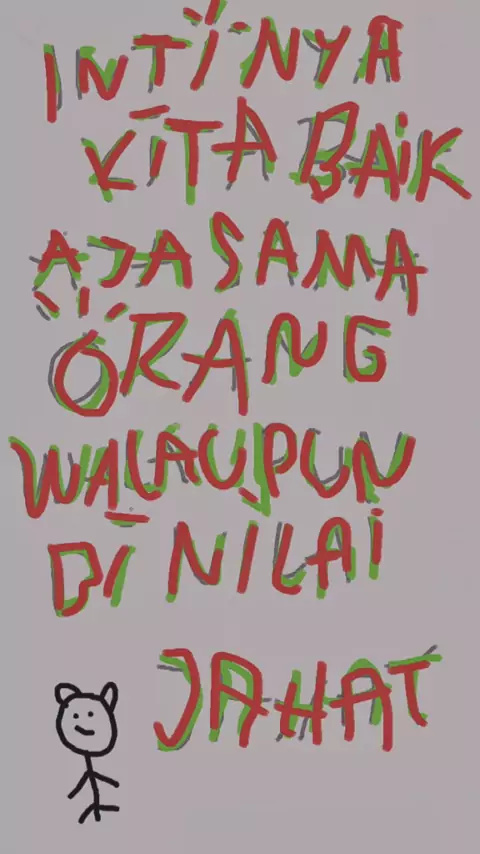 INTINYA
KITA BAiK
AJA SAMA
ORANG
WALAUPUN
DI NILAi
JAHAT